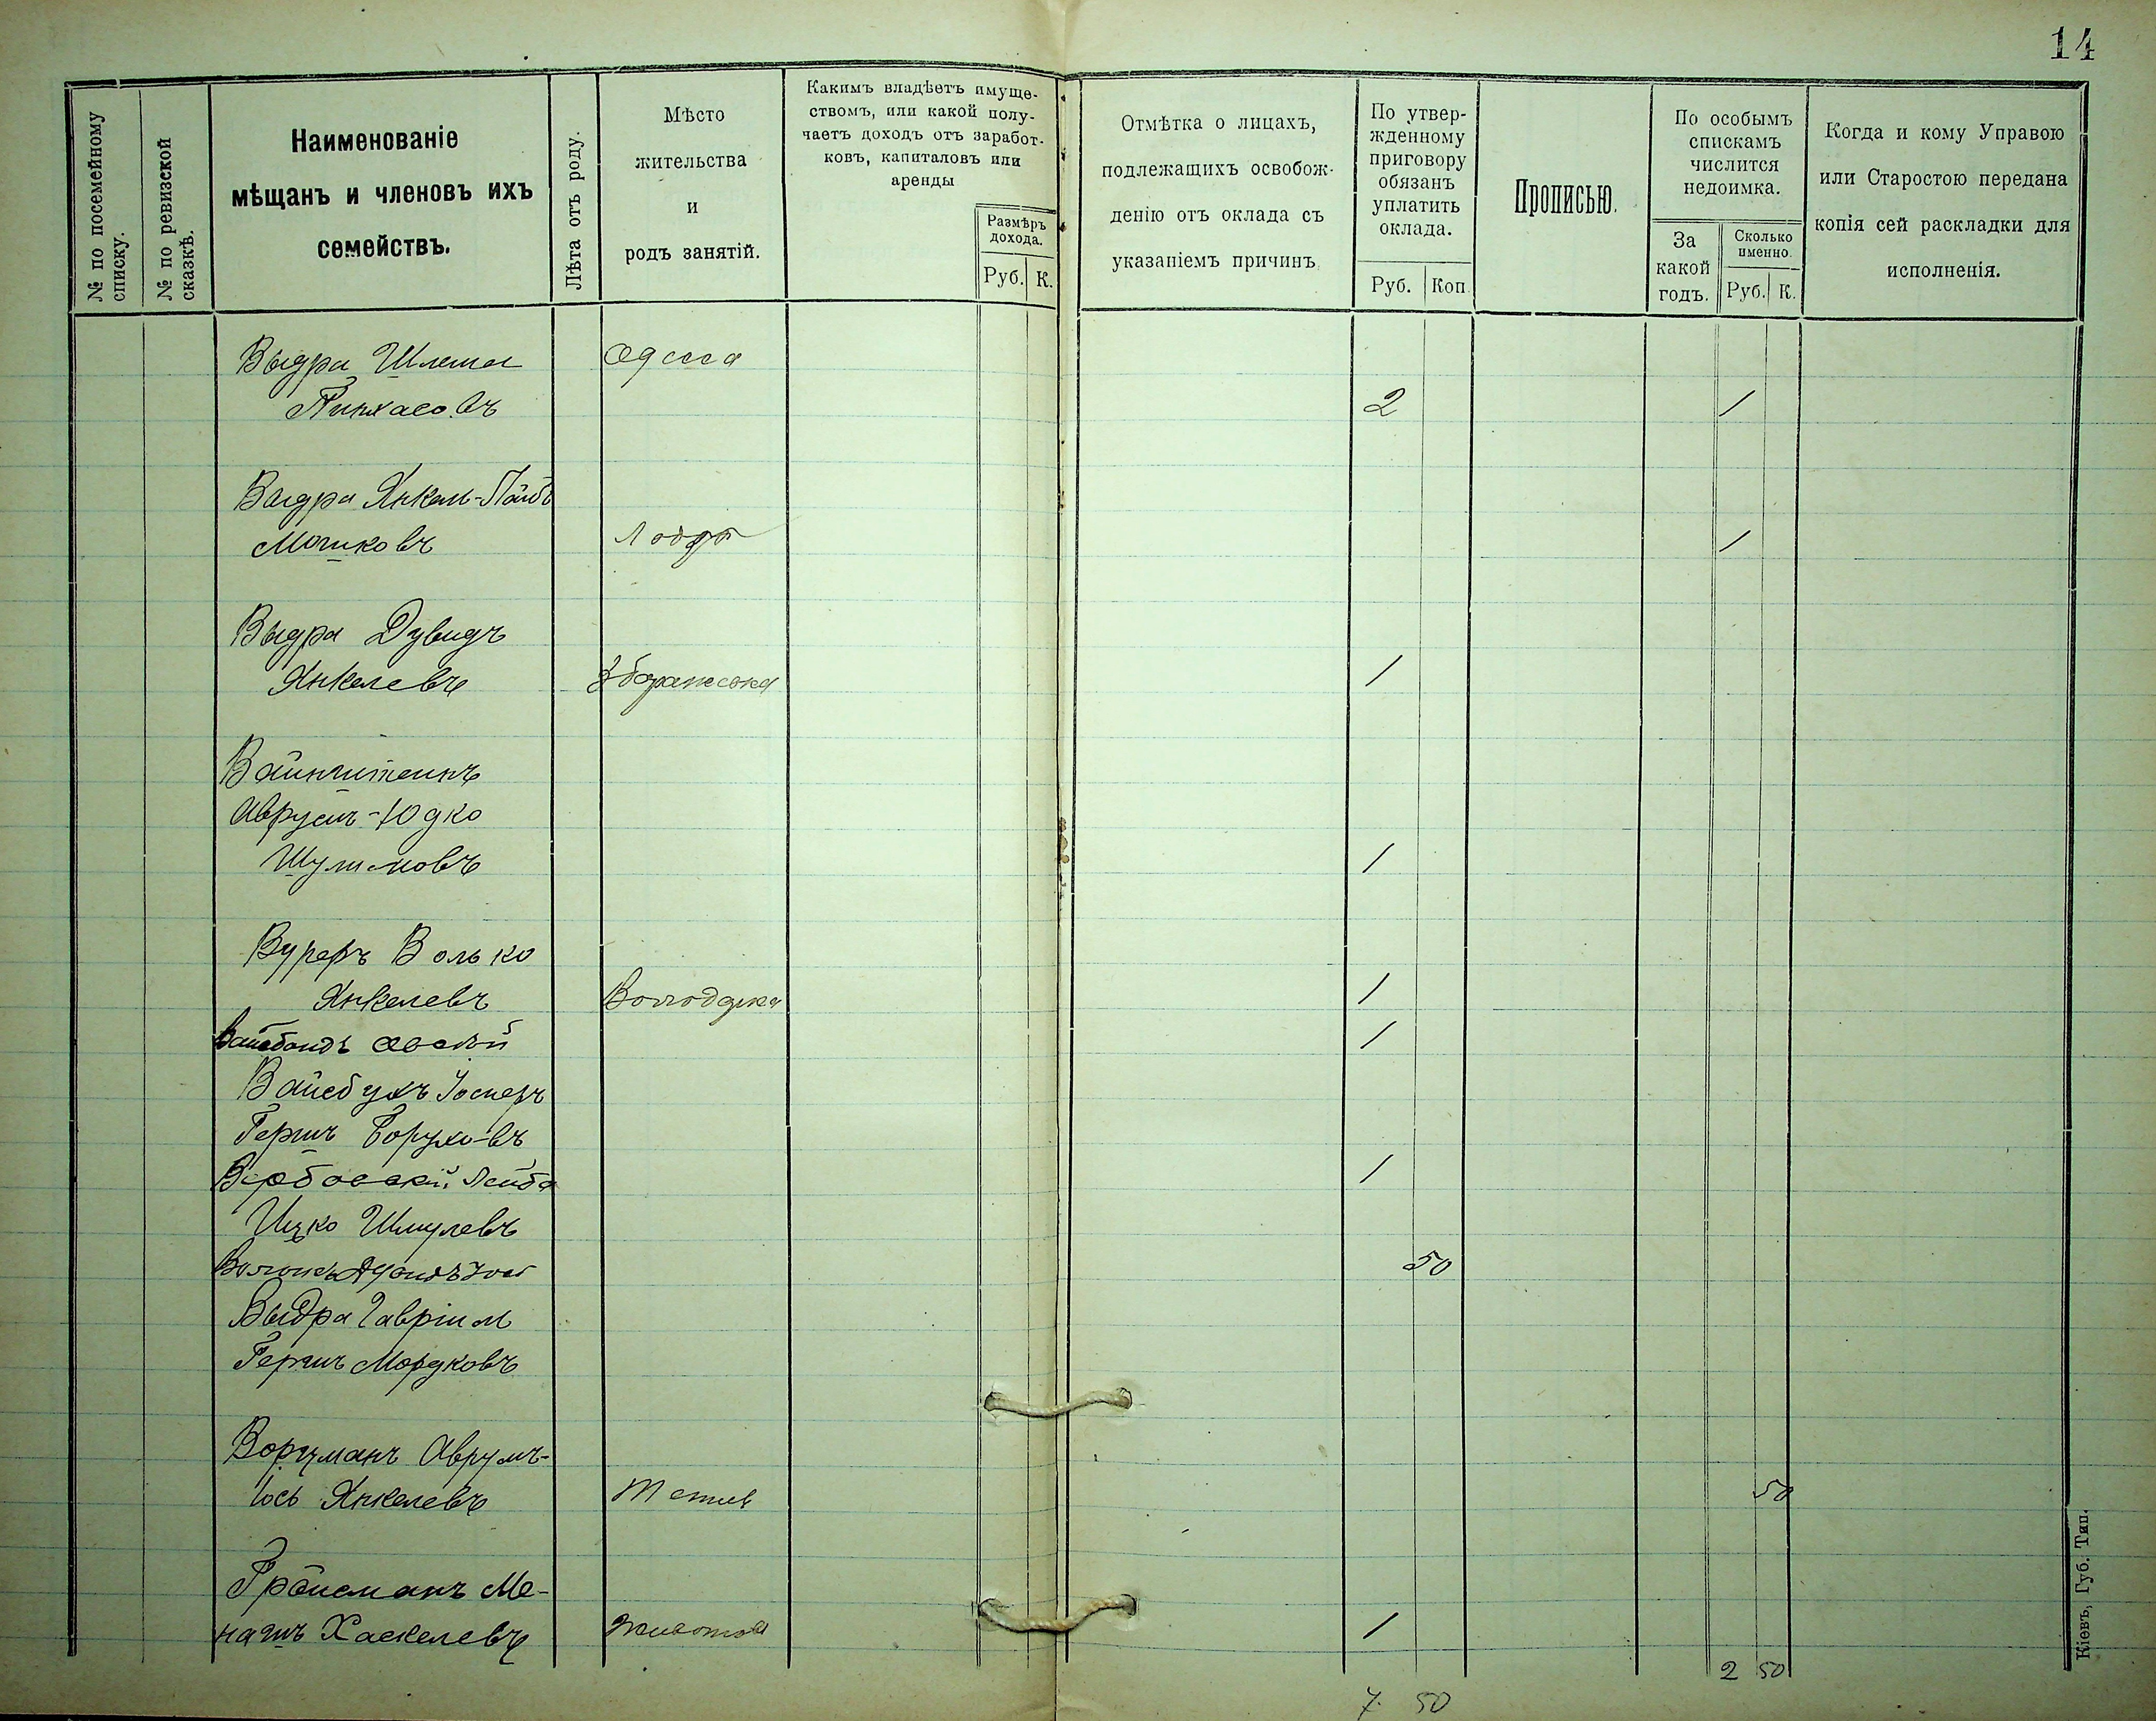 14
№ по посемейному списку.
№ по ревизской сказкѣ.
Наименованіе
мѣщанъ и членовъ ихъ
семействъ.
Лѣта отъ роду.
Мѣсто
жительства
и
родъ занятій.
Какимъ владѣетъ имуще-
ствомъ, или какой полу-
чаетъ доходъ отъ заработ-
ковъ, капиталовъ или
аренды
Размѣръ
дохода.
Руб. К.
Отмѣтка о лицахъ,
подлежащихъ освобож-
денію отъ оклада съ
указаніемъ причинъ
По утвер-
жденному
приговору
обязанъ
уплатить
оклада.
Руб. Коп.
Прописью.
По особымъ
спискамъ
числится
недоимка.
За
какой
годъ.
Сколько
именно.
Руб. К.
Когда и кому Управою
или Старостою передана
копія сей раскладки для
исполненія.
Выдра Шлема Одесса
Пинхасовъ 2 1
Выдра Янкель-Лейбъ
Мошковъ 1
Выдра Дувидъ
Янкелевъ 1
Вайнштейнъ
Аврумъ-Юдко
Шулимовъ 1
Вурерь Волько
Янкелевъ Володарка 1
1
Вайсбухъ
Гершъ Боруховъ
Вербовскій Лейба 1
Ицко Шмулевъ
50
Выдра Гавріил
Гершъ Мордковъ
Ворцманъ Аврумъ-
Іось Янкелевъ 50
Гройсманъ Ме-
нашъ Хаскелевъ Животов 1
2 50
7. 50
Кіевъ, Губ. Тип.